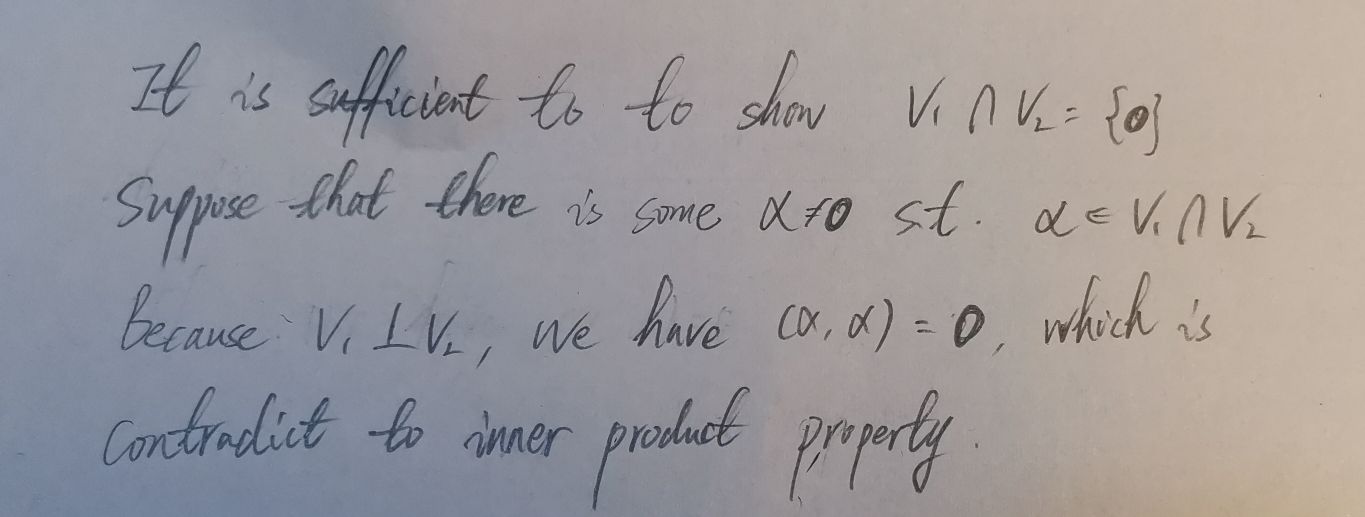 It is sufficient to to show V₁ ∩ V₂ = {0}
Suppose that there is some α≠0 s.t. α ∈ V₁ ∩ V₂
because V₁ ⊥ V₂, we have (α, α) = 0, which is
contradict to inner product property.